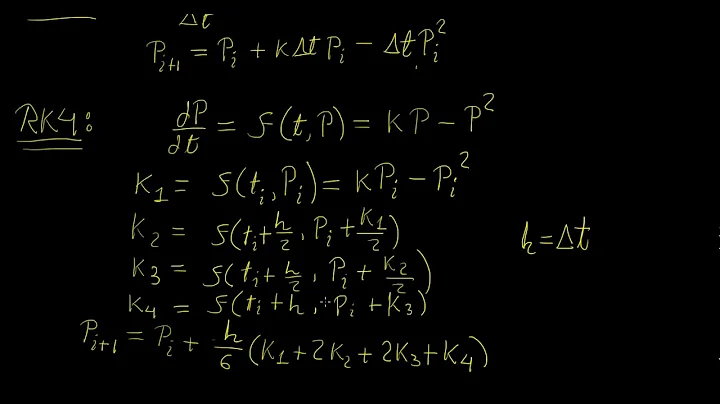 Δt
P_{i+1} = P_i + KΔt P_i − Δt P_i^2
RK4: dP/dt = f(t, P) = KP − P^2
K_1 = f(t_i, P_i) = KP_i − P_i^2
K_2 = f(t_i + h/2, P_i + K_1/2) h = Δt
K_3 = f(t_i + h/2, P_i + K_2/2)
K_4 = f(t_i + h, P_i + K_3)
P_{i+1} = P_i + h/6 (K_1 + 2K_2 + 2K_3 + K_4)